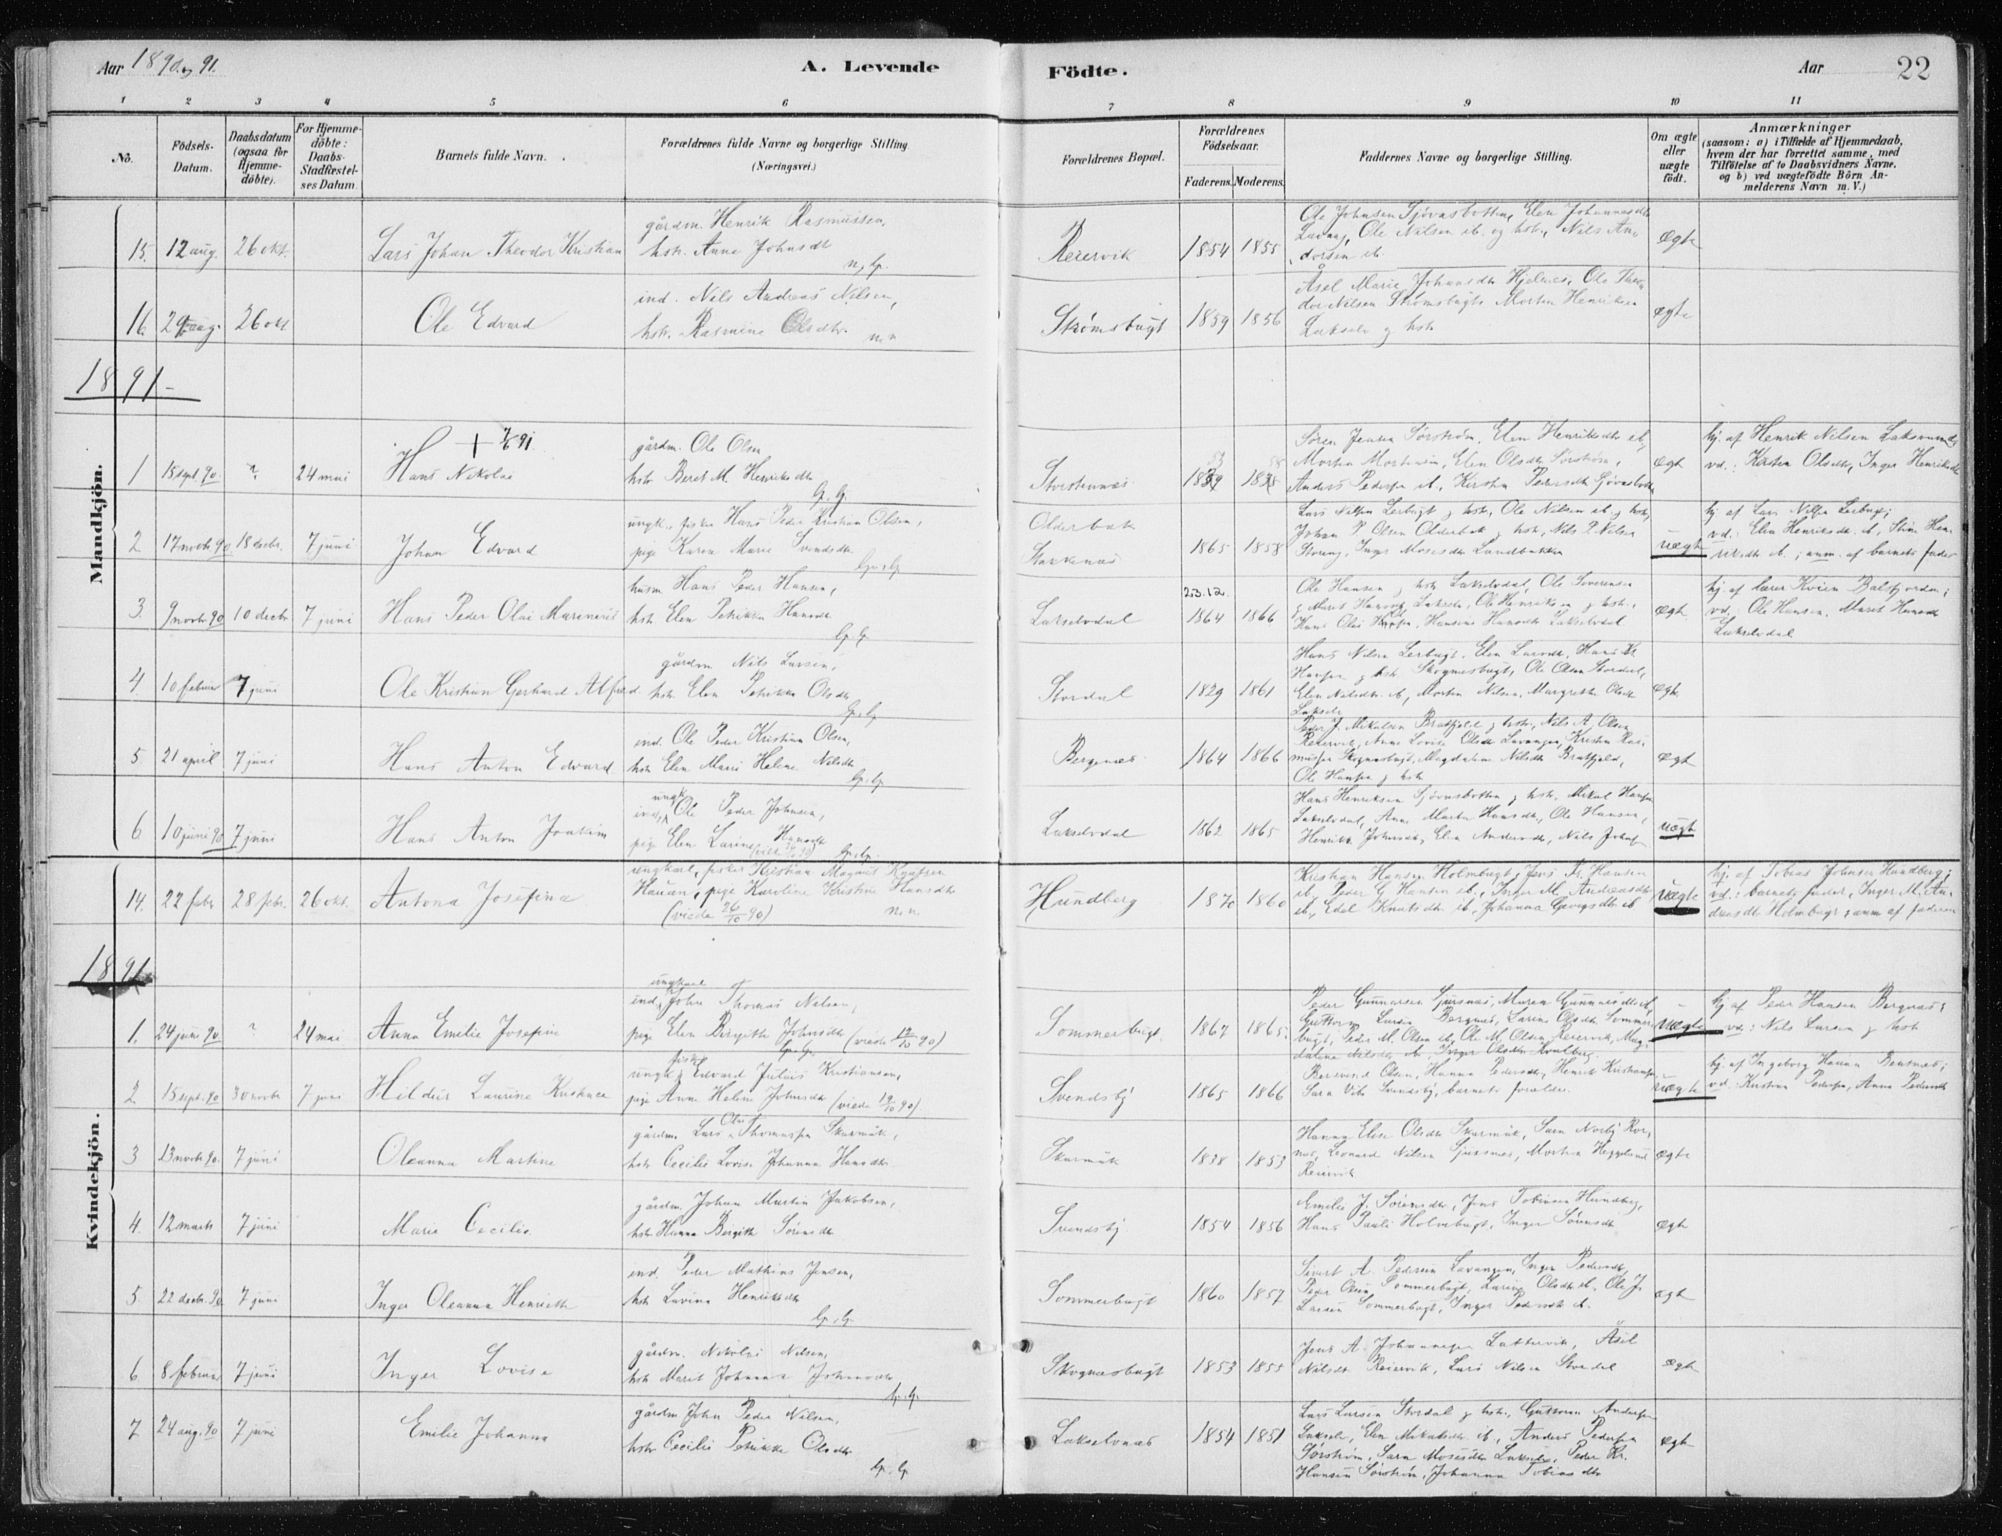 Aar 1890 og 91.
A. Levende
Födte.
Aar
22
1 2 3 4 5 6 7 8 9 10 11
No.
Födsels-Datum.
Daabsdatum (ogsaa for Hjemme-döbte).
For Hjemme-döbte: Daabs-Stadfæstel-ses Datum.
Barnets fulde Navn.
Forældrenes fulde Navne og borgerlige Stilling. (Næringsvei.)
Forældrenes Bopæl.
Forældrenes Födselsaar.
Faderens. Moderens.
Faddernes Navne og borgerlige Stilling.
Om ægte eller uægte födt.
Anmærkninger
(saasom: a) i Tilfælde af Hjemmedaab, hvem der har forrettet samme, med Tilföielse af to Daabsvidners Navne, og b) ved uægtefödte Börn An-melderens Navn m. V.)
Mandkjön.
15. 12 aug. 26 okt. Lars Johan Theodor Kristian
gårdm. Henrik Rasmussen,
hstr. Anne Johnsdt
Reiervik 1854 1855
Ole Johnsen Sjövasbotten, Elen Johannesdt
Lavang, Ole Nilsen ib. og hstr., Nils An-
dersen ib.
ægte
16. 26 okt Ole Edvard
ind. Nils Andreas Nilsen,
hstr. Rasmine Olsdtr.
n.n.
Strömsbugt 1859 1856
Åsel Marie Johansdt Hjelnes, Ole Theo-
dor Nilsen Strömsbugt, Morten Henriksen
Lakselv og hstr
ægte
1891-
1 15 sept. 90. ? 24 mai Hans Nikolai
gårdm. Ole Olsen
hstr Beret M. Henriksdtr
Storstennæs
Sören Jensen Sörström, Elen Henriksdtr ib,
Morten Mortensen, Elen Olsdtr Sörström,
Anders Pedersen ib., Kirsten Pedersdtr Sjövasbotten
ægt
hj. af Henrik Nilsen Laksvand
vd.: Kirsten Olsdtr, Inger Henriksdtr
2 17 novbr 90 18 decbr. 7 juni Johan Edvard
ungk. fisker Hans Peder Kristian Olsen,
pige Karen Marie Svendsdtr
Olderbak
1865 1858
Lars Nilsen Lerbugt og hstr, Ole Nilsen ib. og hstr,
Johan P. Olsen Olderbak og hstr, Nils P. Nilsen
uægte
hj. af Lars Nilsen Lerbugt;
vd.: Elen Henriksdtr ib, Stine Hen-
riksdt ib.; anm. af barnets fader
3. 9 novbr 90 10 decbr 7 juni Hans Peder Olai Marenius
husm Hans Peder Hansen,
hstr Elen Petrikke Hansdt
Lakselvdal 23.12. 1864 1866
Ole Hansen og hstr Lakselvdal, Ole Sörensen
ægte
hj. af lærer Kvien Balsfjorden;
vd.: Ole Hansen, Marit Hansdt
Lakselvdal
4. 10 februar 7 juni Ole Kristian Gerhard Alfred
gårdm Nils Larsen,
hstr. Elen Petrikke Olsdtr
Stordal 1829 1861
Hans Nilsen Lerbugt, Elen Larsdt, Hans Kr.
Hansen og hstr. Skognesbugt, Ole Olsen Stordal,
Elen Nilsdtr ib, Morten Nilsen, Margrethe Olsdt
Lakselv
ægt.
5 21 april 7 juni Hans Anton Edvard
ind. Ole Peder Kristian Olsen,
hstr Elen Marie Helene Nilsdtr
Bergenes 1864 1866
Peder J. Mikalsen Bratfjeld og hstr, Nils A. Olsen
Reiervik, Anne Lovise Olsdtr Lavangen, Kristen Ras-
mussen Skognesbugt, Magdalene Nilsdtr Bratfjeld,
Ole Hansen og hstr
ægt
6 10 juni 90 7 juni Hans Anton Joakim
ungk.
ind. Ole Peder Johnsen,
pige Elen Larine Hansdt
Lakselvdal 1862 1865
Hans Henriksen Sjövasbotten og hstr. Mikal Hansen
Lakselvdal, Anne Martha Hansdt, Ole Hansen,
Henrikke Johnsdt, Elen Andersdt, Nils Johnsen
uægt
Kvindekjön.
14. 22 febr 28 febr. 26 okt. Antona Josefine
ungkarl, fisker Kristian Magnus Knutsen
Hauan, pige Karoline Kristine Hansdt
(viede 26/10 90) n.n.
Hundberg 1870 1860
Kristian Hansen Holmbugt, Jens Fr. Hansen
ib., Peder G. Hansen ib., Inger M. Andreasdt
ib, Edel Knutsdt ib, Johanna Georgsdtr ib
uægte
hj. af Tobias Johnsen Hundberg;
vd.: barnets fader, Inger M. An-
dreasdt Holmbugt; anm. af faderen
1891
1. 24 juni 90. ? 24 mai Anna Emilie Josefine
ungkarl
ind. John Thomas Nilsen,
pige Elen Birgitte Johnsdtr (viede 12/10 90)
Sommerbugt. 1867 1865.
Peder Gunnarsen Sjursnes, Maren Gunnarsdtr ib,
Guttorm Larsen Bergnes, Larine Olsdtr Sommer-
bugt, Peder M. Olsen ib, Ole M. Olsen Reiervik, Mag-
dalene Nilsdtr ib, Inger Olsdtr Kvalberg
uægte
hj. af Peder Hansen Bergnæs;
vd.: Nils Larsen og hstr
2 15 sept. 90 30 novbr 7 juni Hildur Laurine Kristine
fisker
ungk., Edvard Julius Kristiansen,
pige Anne Helene Johnsdtr (viede 19/10 90)
Svendsby 1865 1866
Reinert Olsen, Hanna Pedersdtr, Henrik Kristiansen,
Sara Vik Svendsby, barnets forældre.
uægte
hj. af Ingeborg Hauan Bensnes;
vd. Kristine Pedersen, Anna Pedersdt
3 13 novbr 90. 7 juni Oleanna Martine
gårdm. Lars Olai Thomassen Skarmük,
hstr Cecilie Lovise Johanna Hansdtr
Skarmük 1838 1853
Hanna Elise Olsdtr Skarmük, Sara Norbÿ Kor-
nes, Leonard Nilsen Sjursnes, Morten Heggelund
Reiervik
ægte
4. 12 marts 7 juni Marie Cecilie.
gårdm Johan Martin Jakobsen,
hstr Hanna Bergitte Sörensdtr
Svendsbÿ 1854 1856
Emilie J. Sörensdtr, Jens Tobiasen Hundberg,
Hans Pauli Holmbugt, Inger Sörensdtr
ægt
5. 22 decbr. 90 7 juni Inger Oleanna Henriette
ind. Peder Mathias Jensen,
hstr Lavina Henriksdtr
Sommerbugt 1860 1857
Sivert A. Pedersen Lavangen, Inger Pedersdt,
Peder Olsen Sommerbugt, Larine Olsdtr ib, Ole J.
Larsen Sommerbugt, Inger Pedersdt ib.
ægt
6 8 februar 7 juni Inger Lovise
gårdm. Nikolai Nilsen,
hstr Maret Johanna Johansdtr
Skognæsbugt 1853 1855
Jens A. Johannesen Lattervik, Åsel
Nilsdt Reiervik, Lars Nilsen Stordal
ægt
7 24 aug. 90 7 juni Emilie Johanna
gårdm John Peder Nilsen,
hstr Cecilie Petrikke Olsdtr
Lakselvnæs 1854 1851
Lars Larsen Stordal og hstr., Guttorm Andersen
Lakselv, Elen Mikalsdtr ib., Anders Pedersen
Sörström, Sara Mosesdtr Lakselv, Peder Kr.
Hansen Sörström, Johanna Tobiasdtr
ægt